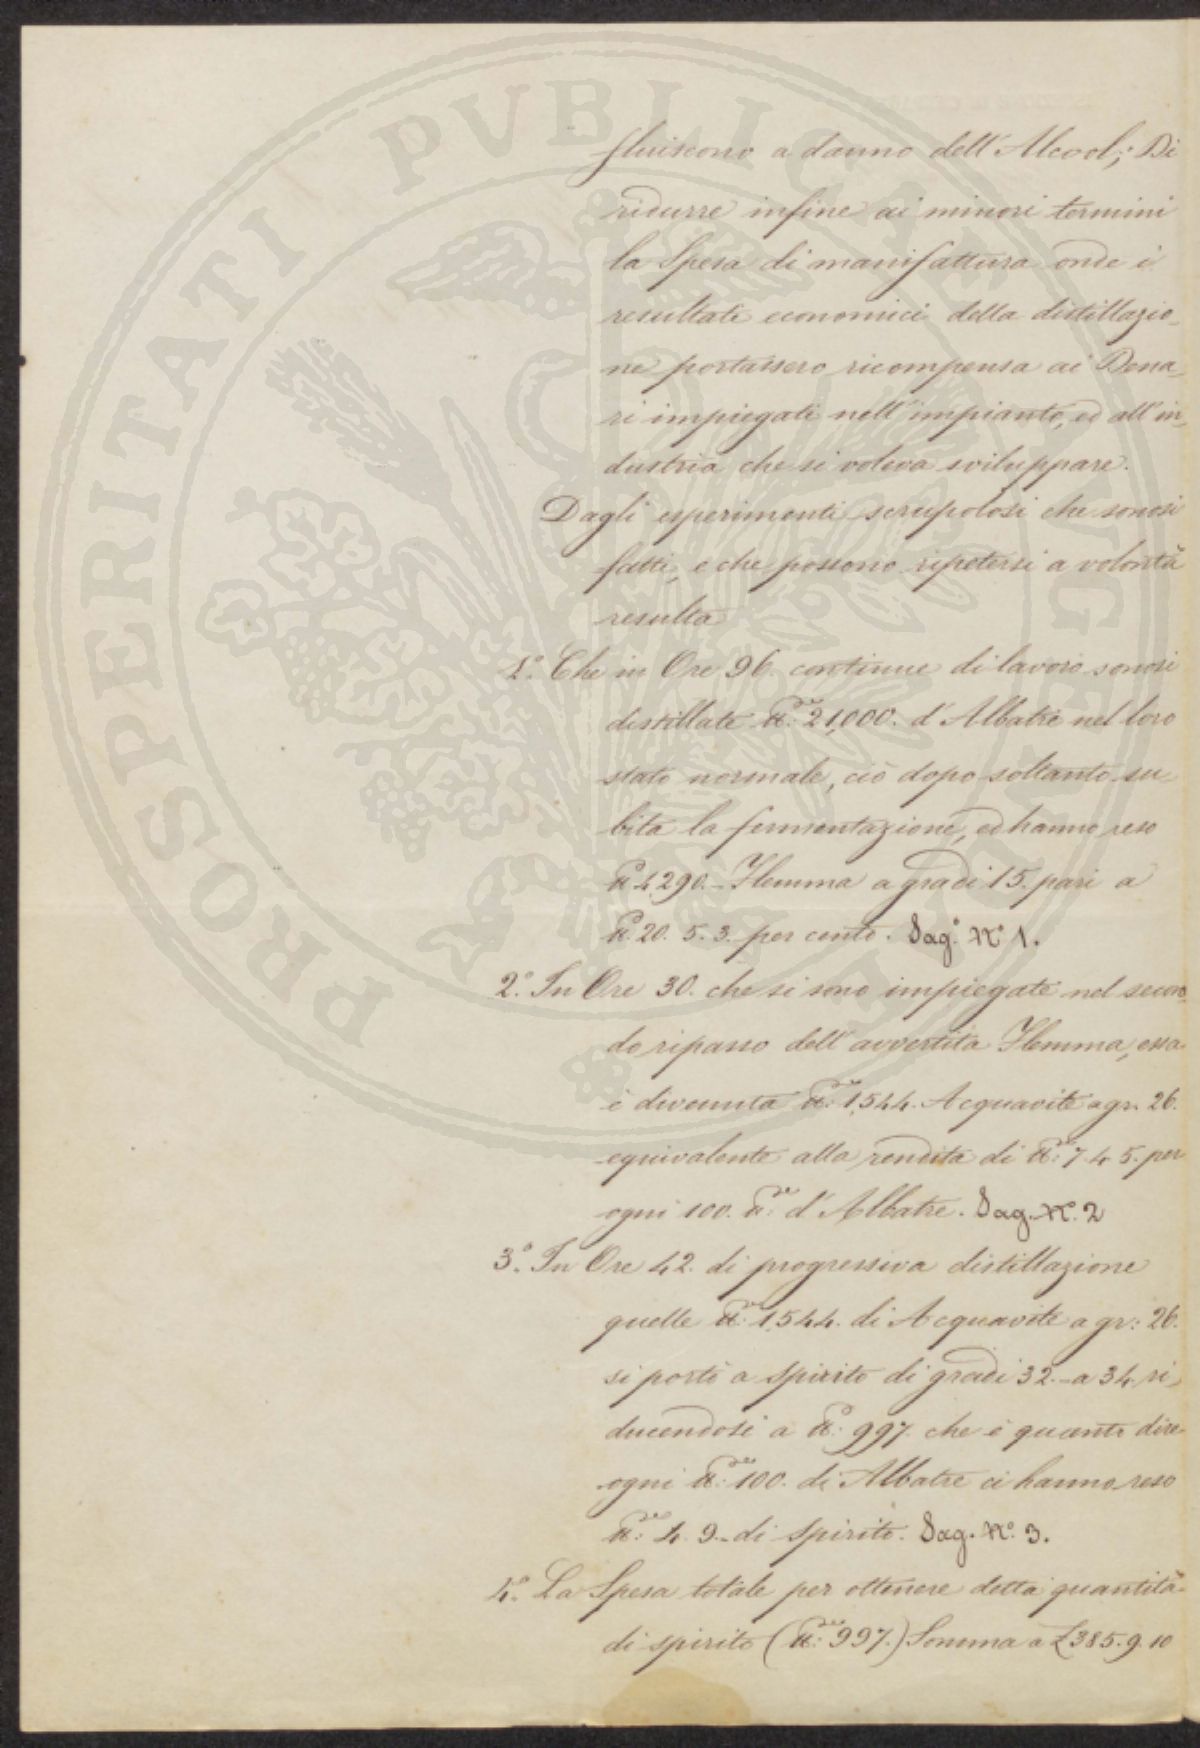 fluiscono a danno dell'Alcool; Di
ridurre infine ai minori termini
la Spesa di manifattura onde i
resultati economici della distillazio_
ne portassero ricompensa ai Dena_
ri impiegati nell'impianto, ed all'in_
dustria che si voleva sviluppare.
Dagli esperimenti scrupolosi che sonosi
fatti, e che possono ripetersi a volontà
resulta
1.° Che in Ore 96. continue di lavoro sonosi
distillate 21,000. d'Albatre nel loro
stato normale, ciò dopo soltanto su_
bita la fermentazione, ed hanno reso
4,290._ Flemma a gradi 15. pari a
20. 5. 3. per cento. Sag.° N.° 1.
2.° In Ore 30. che si sono impiegate nel secon_
do ripasso dell'avvertita Flemma, essa
è divenuta 1,544. Acquavite a gr. 26.
equivalente alla rendita di 7. 4. 5. per
ogni 100. d'Albatre. Sag. N.° 2
3.° In Ore 42. di progressiva distillazione
quelle 1,544. di Acquavite a gr: 26.
si portò a Spirito di gradi 32._ a 34. ri_
ducendosi a 997. che è quanto dire
ogni 100. di Albatre ci hanno reso
4. 9._ di Spirito. Sag. N.° 3.
4.° La Spesa totale per ottenere detta quantità
di spirito (997.) Somma a £385. 9. 10
PROSPERITATI PVBLICAE AVGENDAE